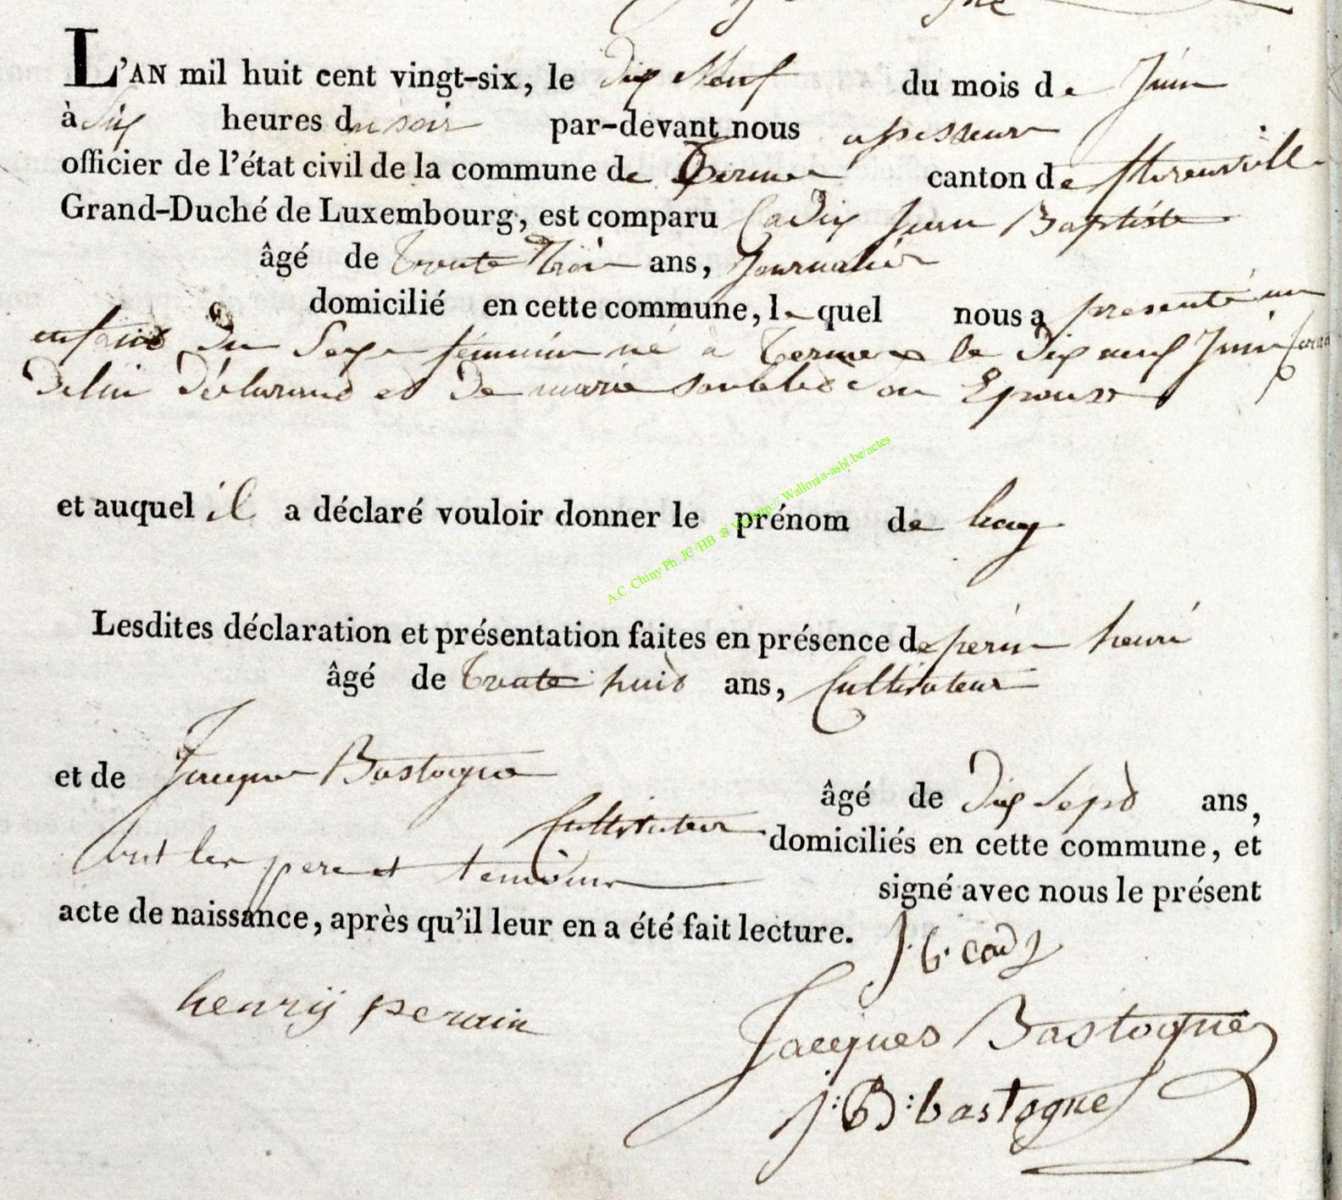 L'AN mil huit cent vingt-six, le dix neuf du mois de Juin
à Six heures du soir par-devant nous assesseur
officier de l'état civil de la commune de Termes canton de florenville
Grand-Duché de Luxembourg, est comparu Cadix Jean Baptiste
âgé de Trente Trois ans, Journalier
domicilié en cette commune, lequel nous a presenté un
enfant du Sexe féminin né à Termes le dix neuf Juin
De lui déclarant et De marie son Epouse
et auquel il a déclaré vouloir donner le prénom de
A.C. Chiny Ph. JC HB Wallonia-asbl.be/actes
Lesdites déclaration et présentation faites en présence de perin henri
âgé de Trente huit ans, Cultivateur
et de Jacques Bastogne âgé de Dix Sept ans,
Cultivateur domiciliés en cette commune, et
ont les pere et temoins signé avec nous le présent
acte de naissance, après qu'il leur en a été fait lecture.
J. b. cadx
henrÿ perain
Jacques Bastogne
J: B: bastogne